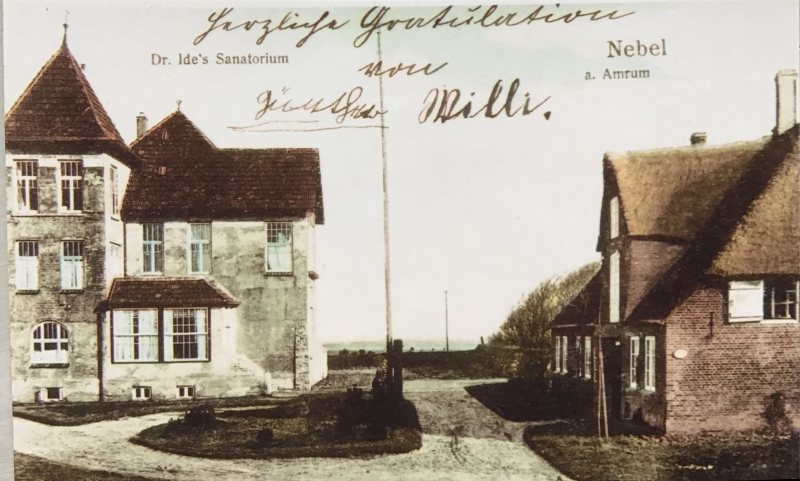 Herzliche Gratulation
Dr. Ide's Sanatorium
von
Nebel
a. Amrum
Günther Willi.